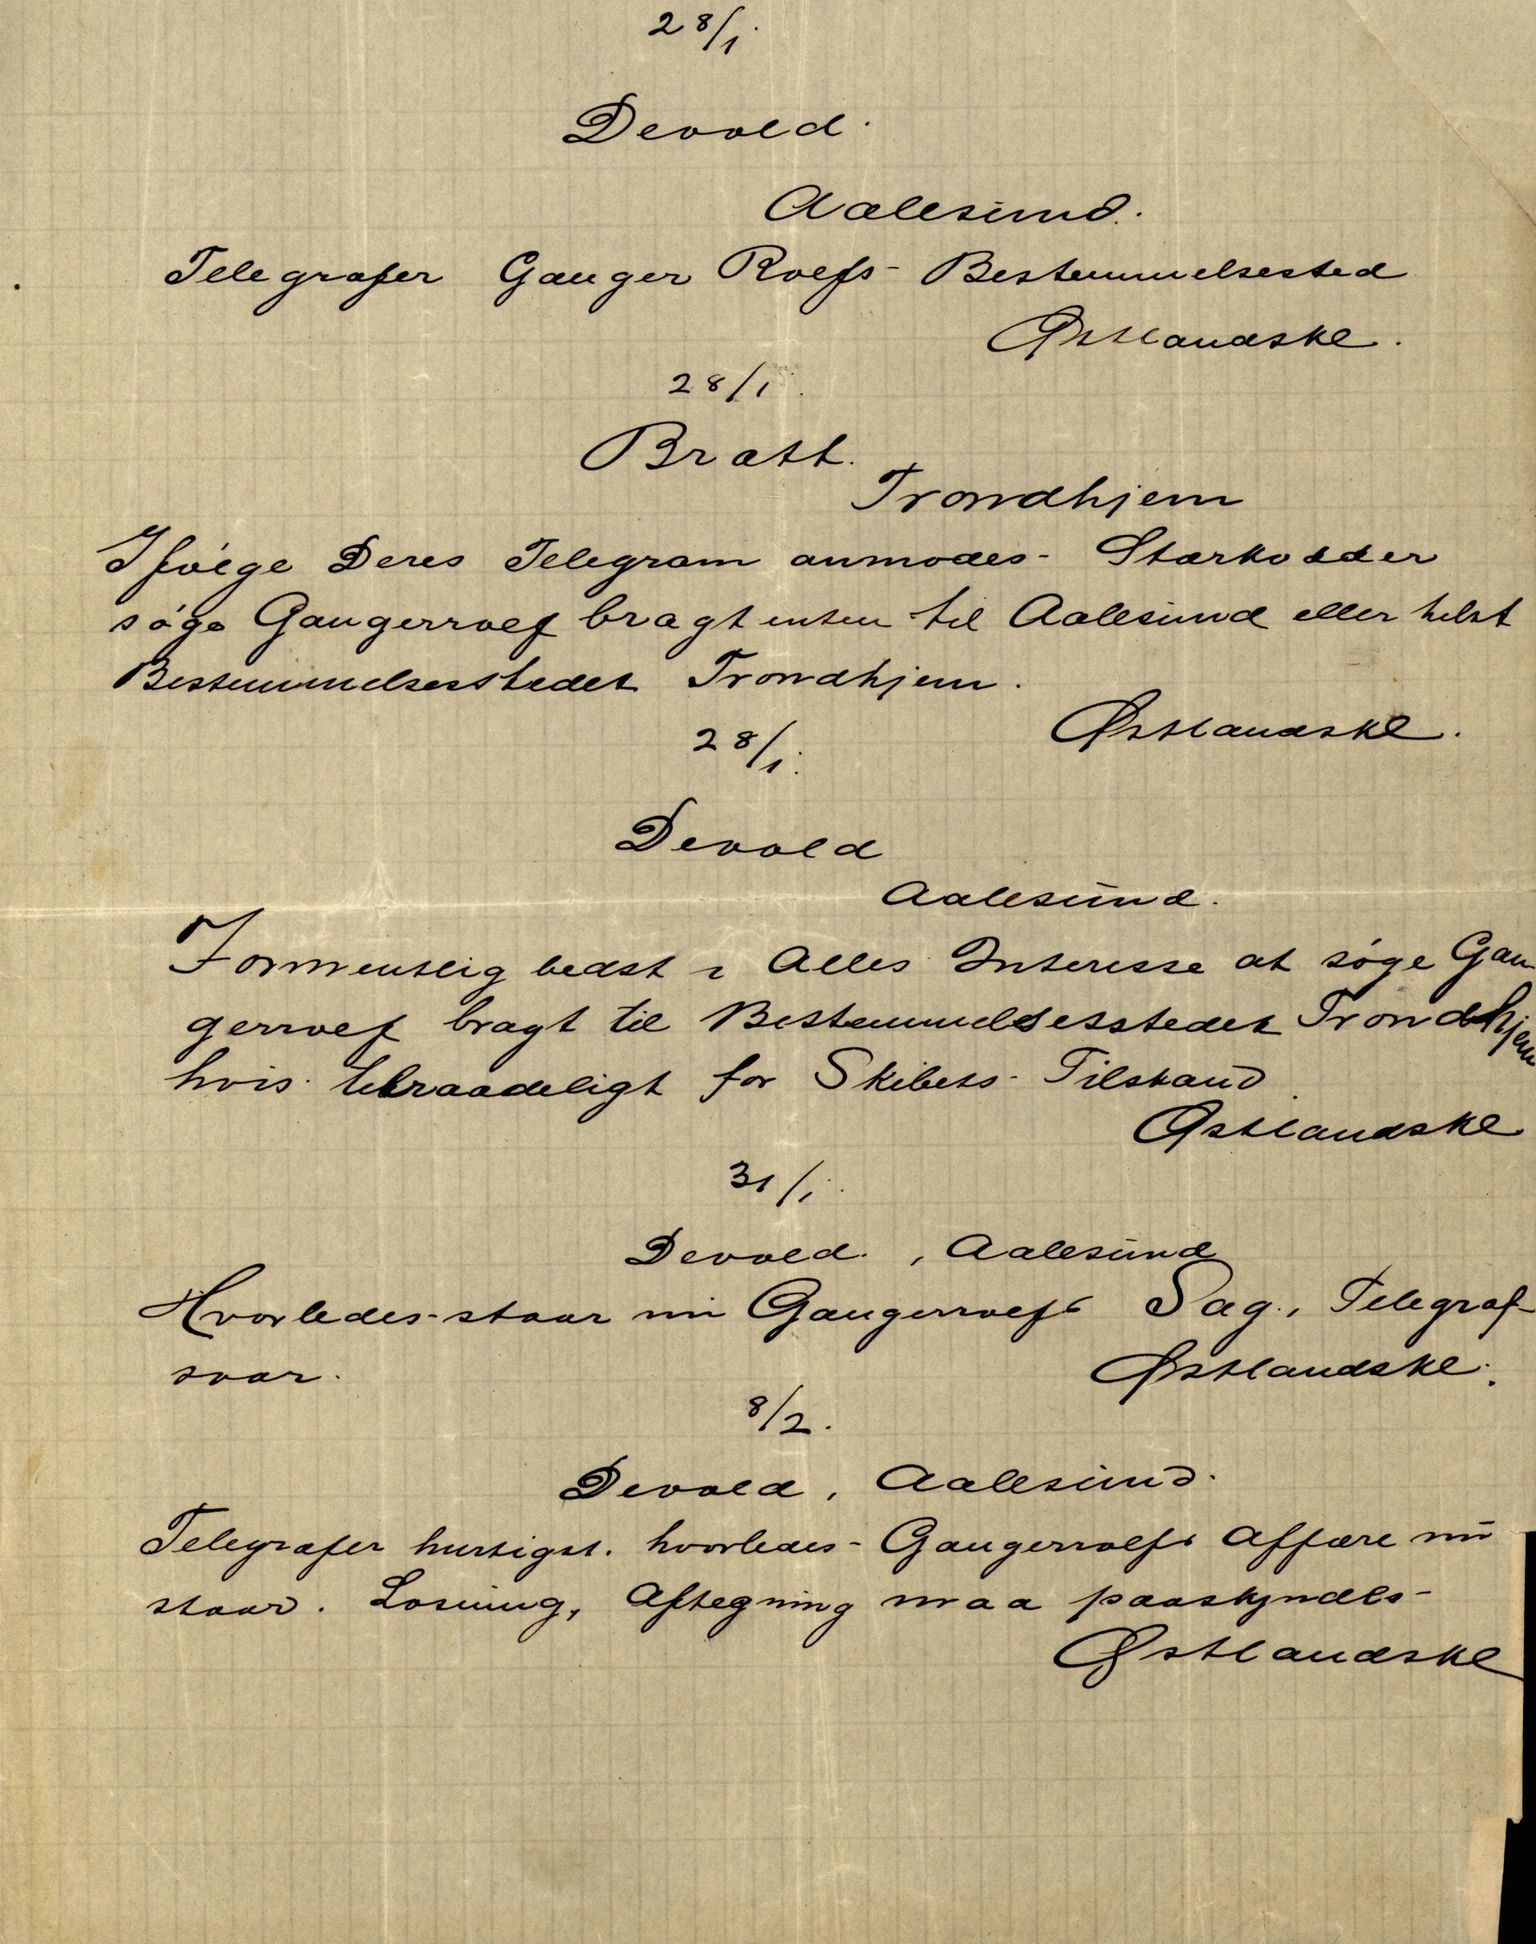 28/1.
Devold.
Aalesund.
Telegrafer Ganger Rolfs Bestemmelsested
Østlandske.
28/1.
Bratt.
Trondhjem
Ifølge Deres Telegram anmodes Stærkodder
søge Gangerrolf bragt enten til Aalesund eller helst
Bestemmelsesstedet Trondhjem.
Østlandske.
28/1.
Devold
Aalesund.
Formentlig bedst i Alles Interesse at søge Gan
gerrolf bragt til Bestemmelsesstedet Trondhjem
hvis tilraadeligt for Skibets Tilstand.
Østlandske
31/1.
Devold., Aalesund
Hvorledes staar nu Gangerrolfs Sag., Telegraf-
svar.
Østlandske.
8/2.
Devold, Aalesund.
Telegrafer hurtigst. hvorledes Gangerrolfs Affære nu
staar. Losning, Aftegning maa paaskyndes
Østlandske